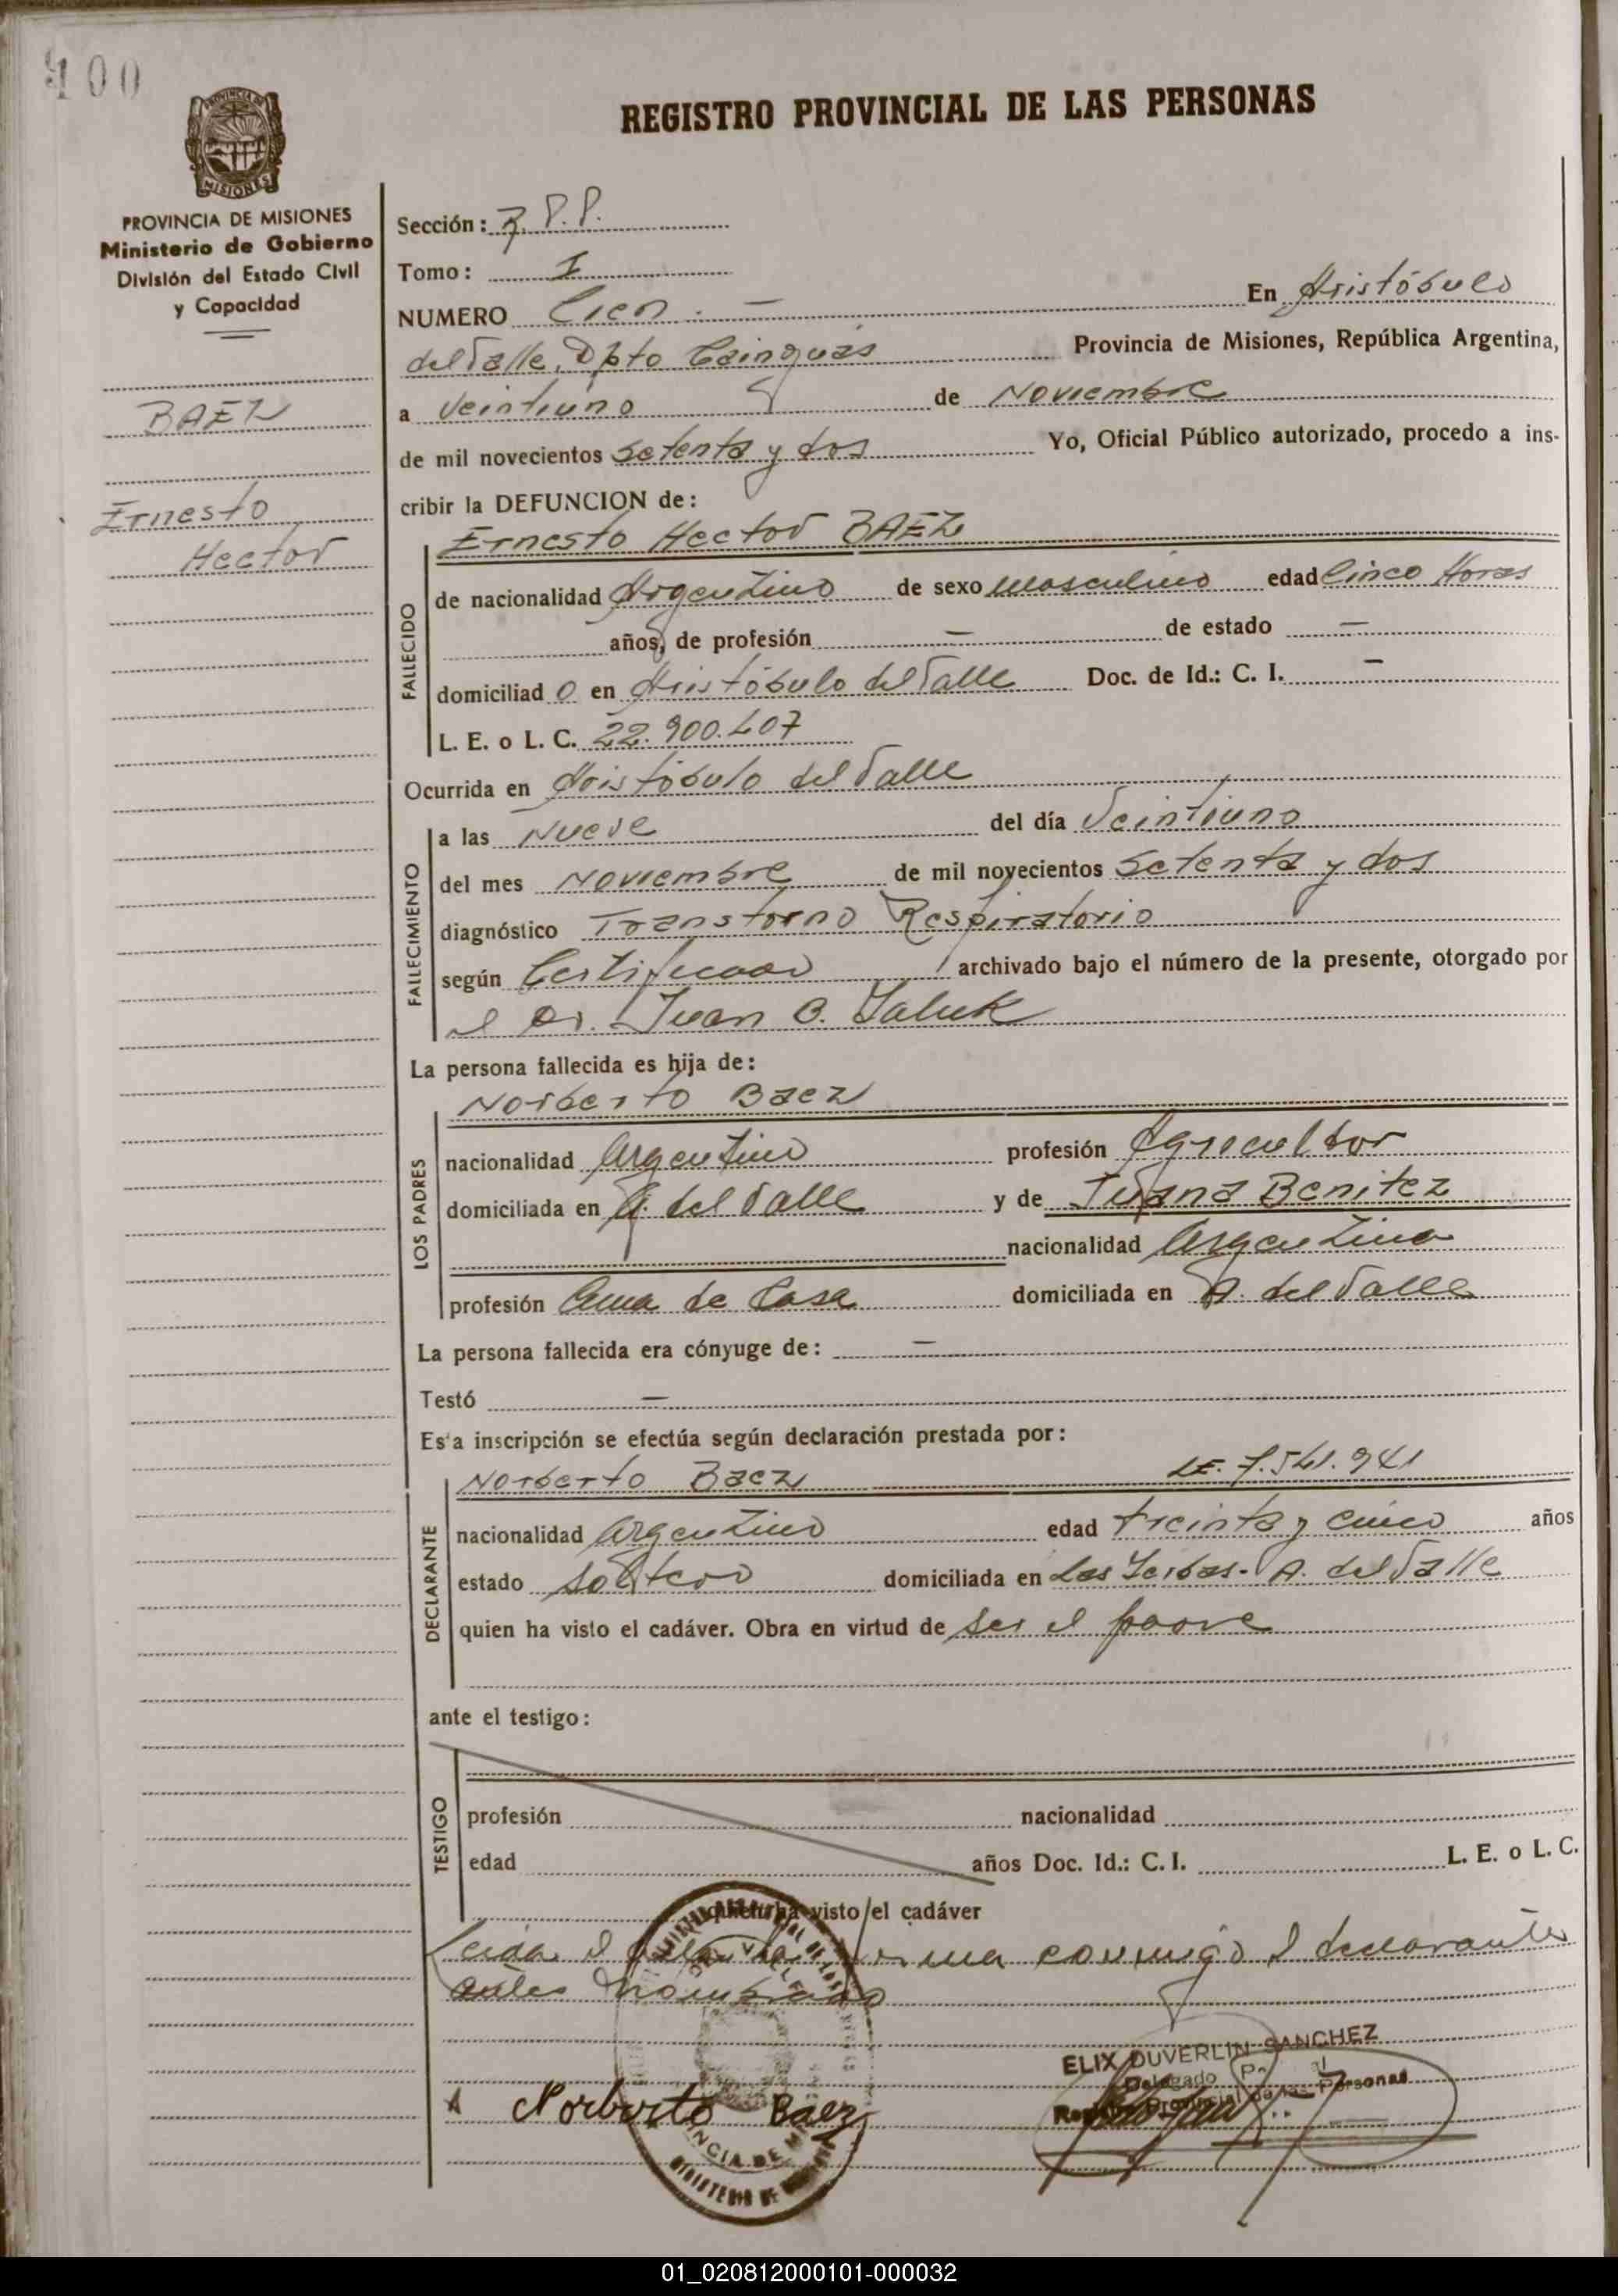 100
REGISTRO PROVINCIAL DE LAS PERSONAS
PROVINCIA DE MISIONES
Ministerio de Gobierno
División del Estado Civil
y Capacidad
BAEZ
Ernesto
Hector
Sección: 7. P.P.
Tomo: I
NUMERO Cien. — En Aristóbulo
del Valle, Dpto Cainguás Provincia de Misiones, República Argentina,
a veintiuno de Noviembre
de mil novecientos setenta y dos Yo, Oficial Público autorizado, procedo a ins-
cribir la DEFUNCION de:
FALLECIDO
Ernesto Hector BAEZ
de nacionalidad Argentino de sexo masculino edad Cinco Horas
años, de profesión — de estado —
domiciliad o en Aristóbulo del Valle Doc. de Id.: C. I. —
L. E. o L. C. 22.900.407
Ocurrida en Aristóbulo del Valle
FALLECIMIENTO
a las Nueve del día Veintiuno
del mes Noviembre de mil novecientos setenta y dos
diagnóstico Transtorno Respiratorio
según Certificado archivado bajo el número de la presente, otorgado por
el Dr. Juan C.
La persona fallecida es hija de:
LOS PADRES
Norberto Baez
nacionalidad Argentino profesión Agricultor
domiciliada en A. del Valle y de Juana Benitez
nacionalidad Argentina
profesión Ama de Casa domiciliada en A. del Valle
La persona fallecida era cónyuge de: —
Testó —
Esta inscripción se efectúa según declaración prestada por:
DECLARANTE
Norberto Baez LE. 7.541.941
nacionalidad Argentino edad treinta y cinco años
estado soltero domiciliada en Las Yerbas - A. del Valle
quien ha visto el cadáver. Obra en virtud de ser el padre
ante el testigo:
TESTIGO
profesión nacionalidad
edad años Doc. Id.: C. I. L. E. o L. C.
quien ha visto el cadáver
Leída el acta la firma conmigo el declarante
antes nombrado
ELIX DUVERLIN SANCHEZ
Delegado
Registro Provincial de las Personas
Norberto Baez
01_020812000101-000032